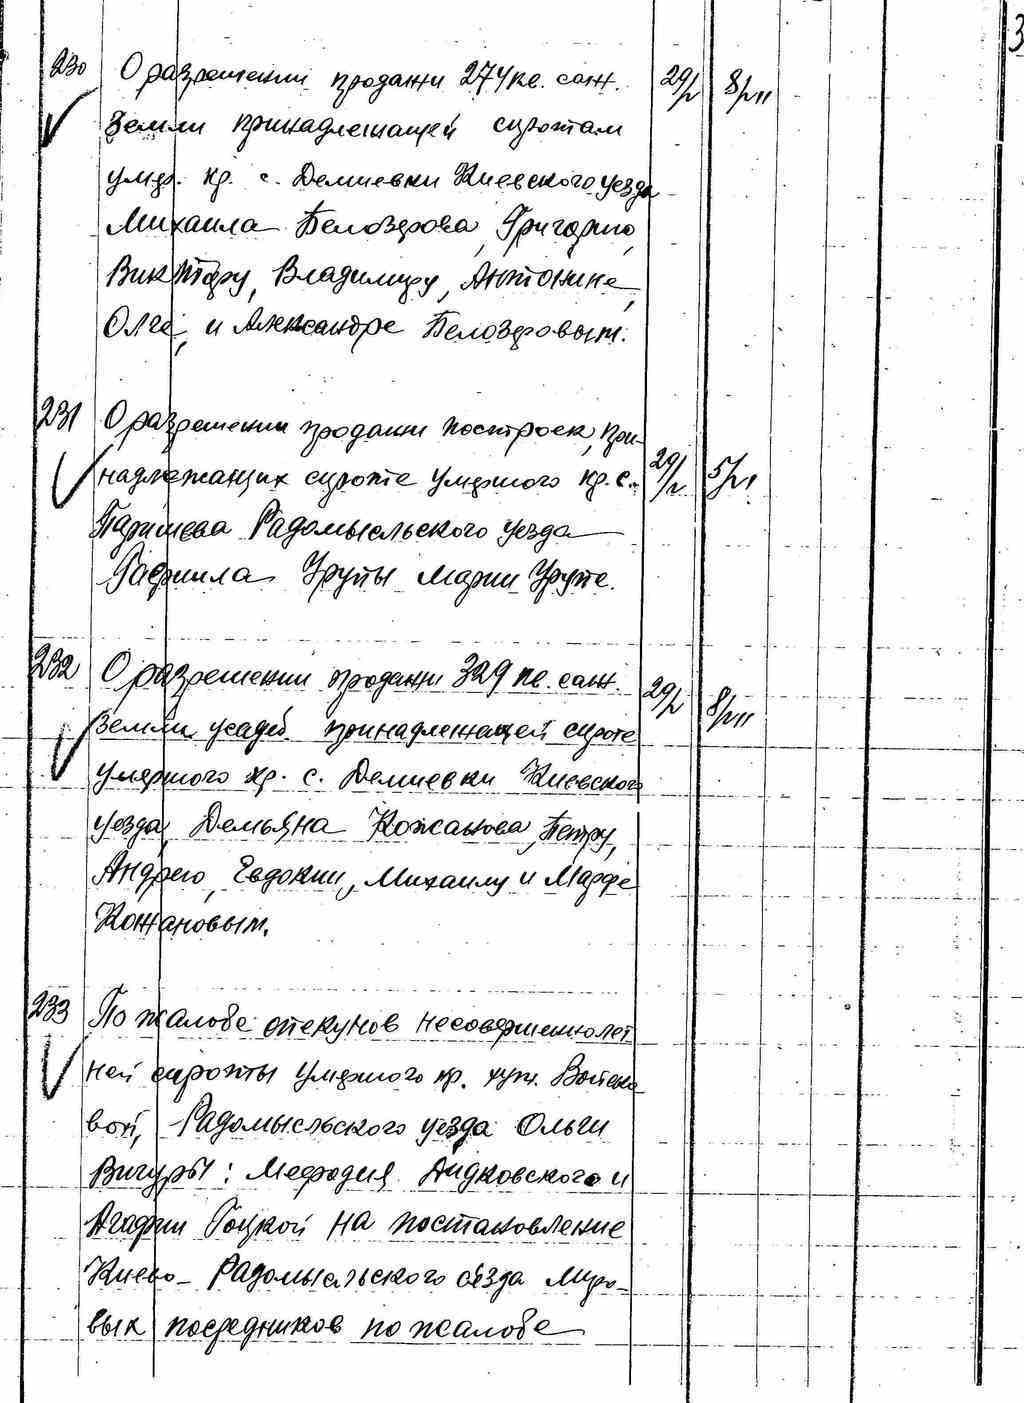 3
230 О разрешении продажи 274 кв. саж. 29/V 8/VII
земли принадлежащей сиротам
умер. кр. с. Демиевки Киевского уезда
Михаила Белозерова, Григорию,
Виктору, Владимиру, Антонине,
Олге, и Александре Белозеровым.
231 О разрешении продажи построек, при-
надлежащих сироте умершого кр. с. 29/V 5/VI
Паришева Радомысльского уезда
Рафиила Урупы Марии Урупе.
232 О разрешении продажи 329 кв. саж. 29/V 8/VII
земли усадеб. принадлежащей сироте
умершого кр. с. Демиевки Киевского
уезда, Демьяна Кожанова, Петру,
Андрею, Евдокии, Михаилу и Марфе
Кожановым.
233 По жалобе опекунов несовершенолет
ней сироты умершого кр. хут.
вой, Радомысльского уезда Ольги
Вигуры: Мефодия и
Агафии Гоцкой на постановление
Киево-Радомысльского съезда миро-
вых посредников по жалобе